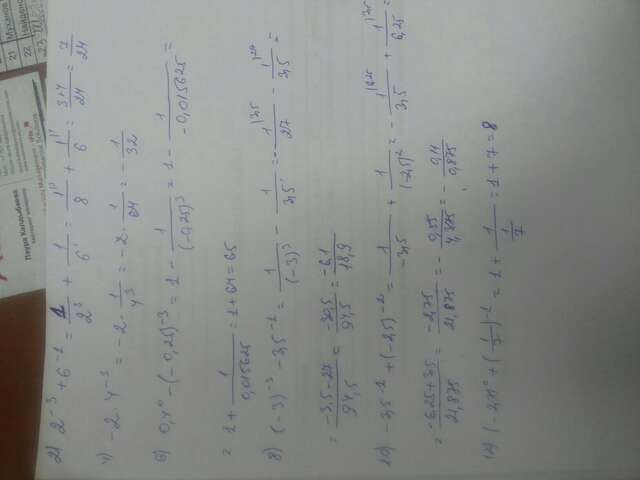 2) 2^{-3} + 6^{-1} = 1/2^3 + 1/6^1 = 1/8 + 1/6 = 3+4/24 = 7/24
4) -2 · 4^{-3} = -2 · 1/4^3 = -2 · 1/64 = - 1/32
6) 0,4^0 - (-0,25)^{-3} = 1 - 1/(-0,25)^3 = 1 - 1/-0,015625 =
= 1 + 1/0,015625 = 1 + 64 = 65
8) (-3)^{-3} - 3,5^{-1} = 1/(-3)^3 - 1/3,5^1 = - 1/27 - 1/3,5 =
= -3,5-27/94,5 = -30,5/94,5 = -6,1/18,9
10) -3,5^{-1} + (-2,5)^{-2} = 1/-3,5 + 1/(-2,5)^2 = - 1/3,5 + 1/6,25 =
= -6,25+3,5/21,875 = -2,75/21,875 = - 0,55/4,375 = - 0,11/0,875